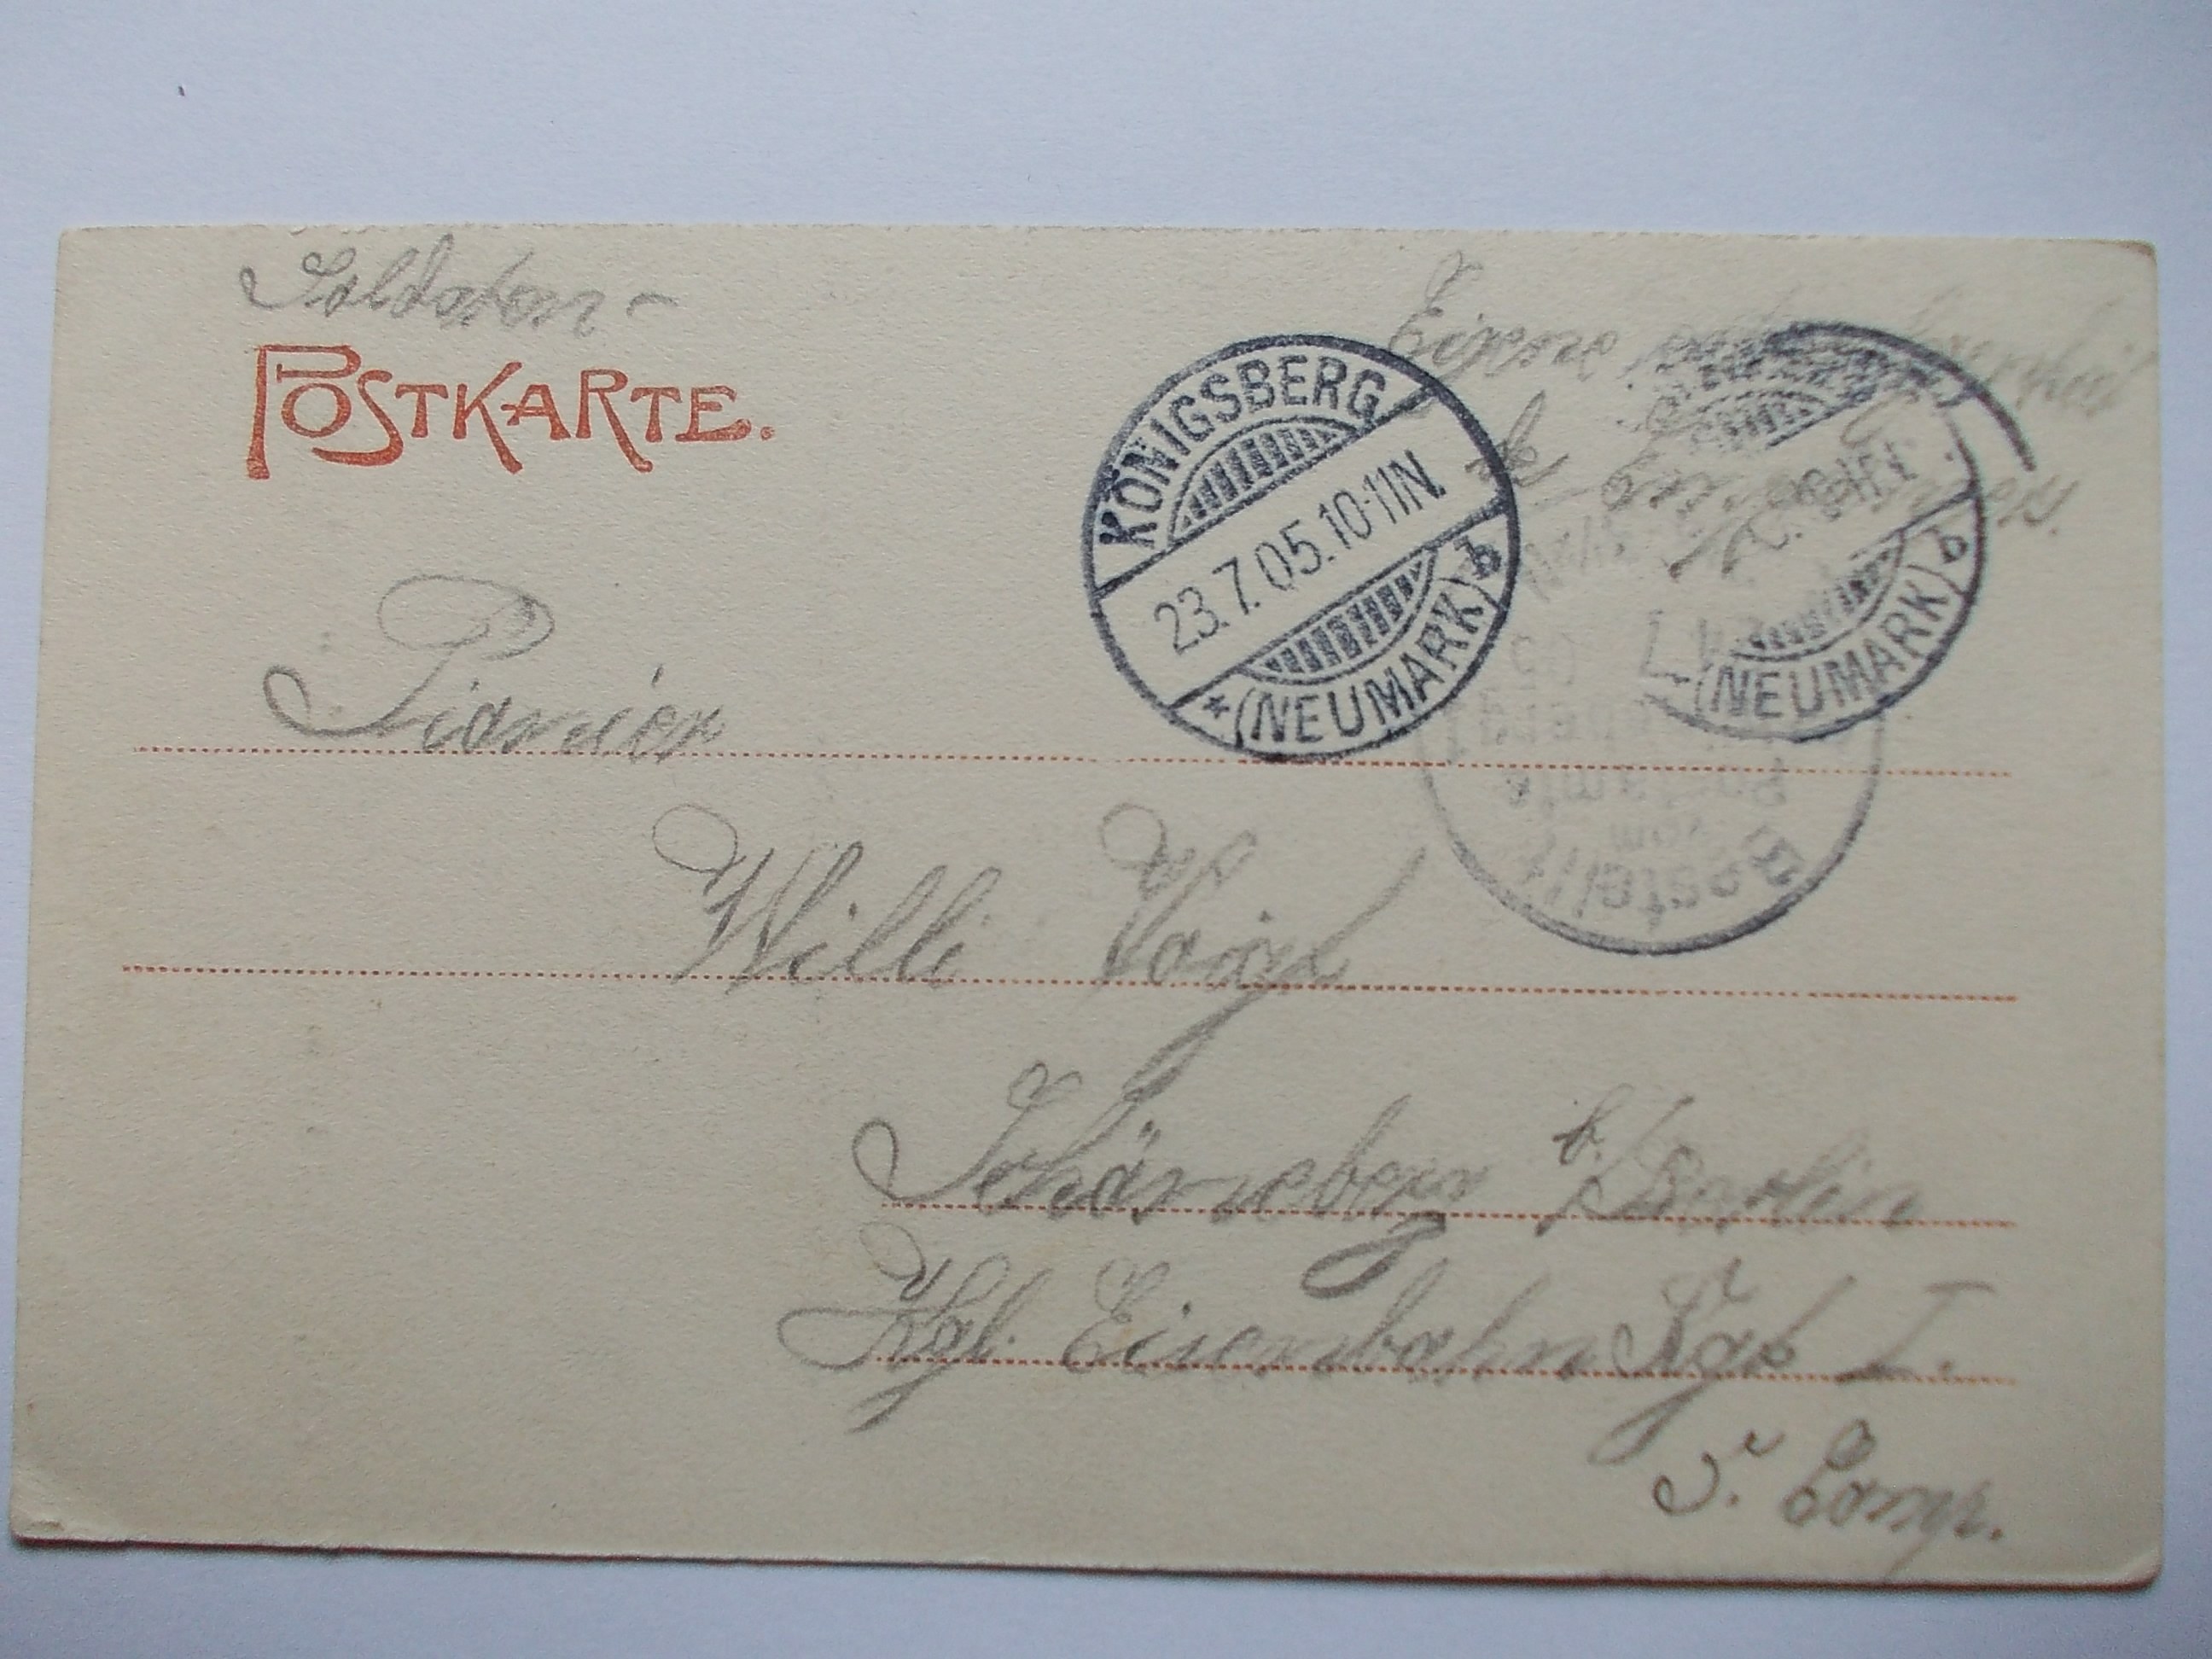 Soldaten-
POSTKARTE.
Eigene
des
KÖNIGSBERG
23.7.05.10-11N.
* (NEUMARK) b
(NEUMARK) b
Bestellt
vom
Postamte
Pionier
Willi Voigt
Schöneberg b./Berlin
Kgl. Eisenbahn Rgt I.
Comp.